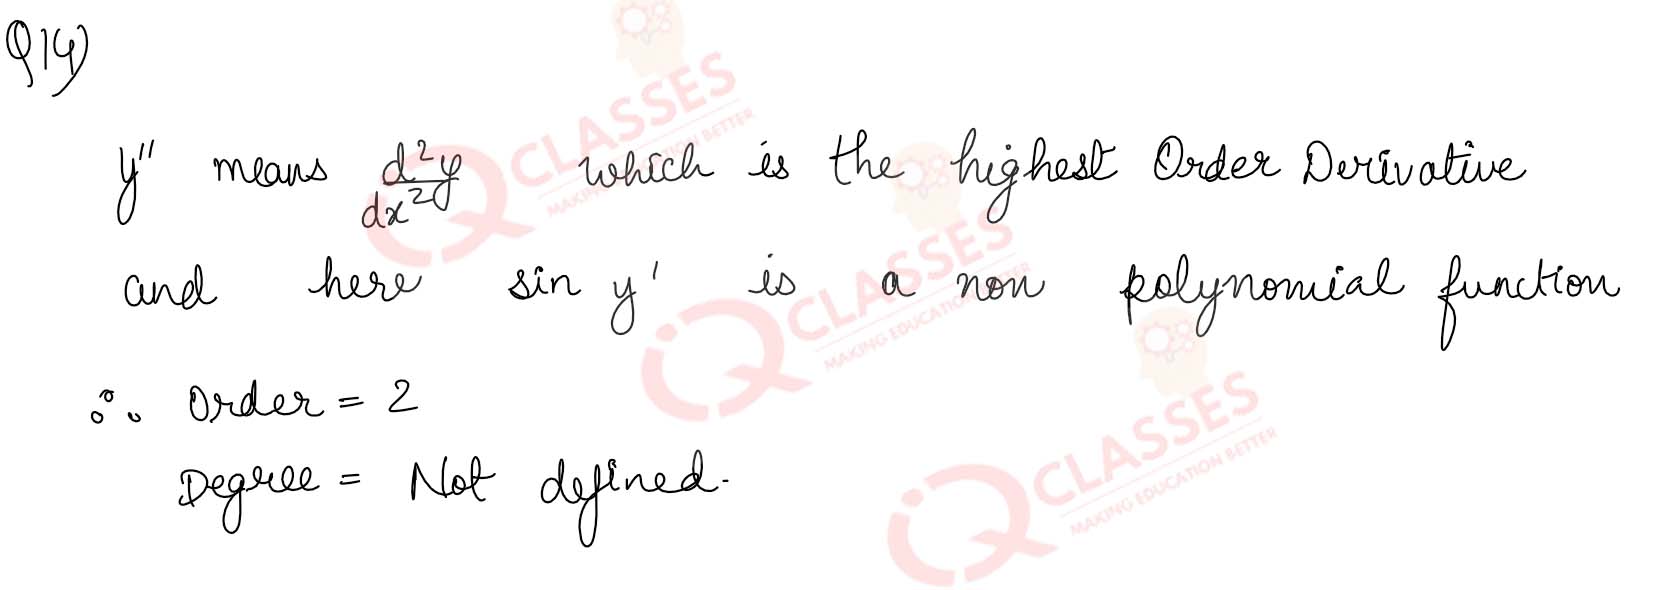 Q14)
y'' means d²y/dx² which is the highest Order Derivative
and here sin y' is a non polynomial function
∴ Order = 2
Degree = Not defined.
iQ CLASSES
MAKING EDUCATION BETTER
iQ CLASSES
MAKING EDUCATION BETTER
iQ CLASSES
MAKING EDUCATION BETTER